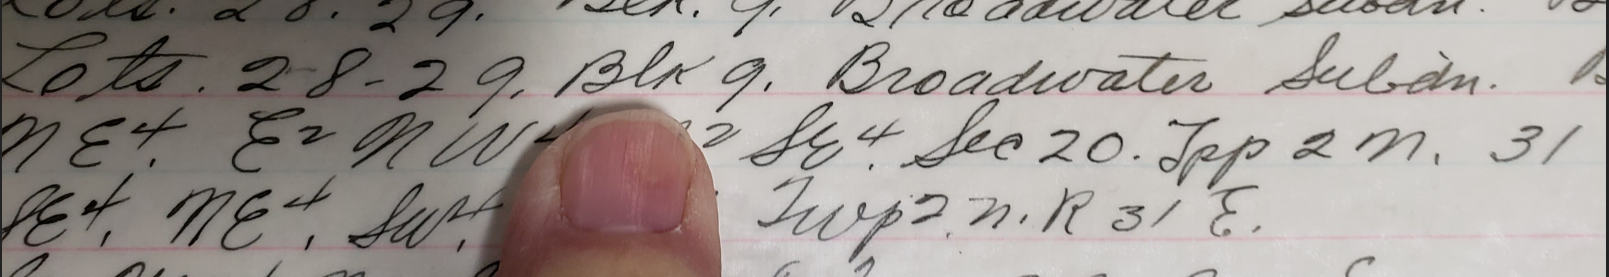 Lots. 28-29. Blk. 9. Broadwater Subdn.
Lots. 28-29, Blk 9. Broadwater Subdn.
NE4. E2 NW4 2 SE4. Sec 20. Tpp 2 N. 31
SE4, NE4, SW4, Twp 2. N. R 31 E.